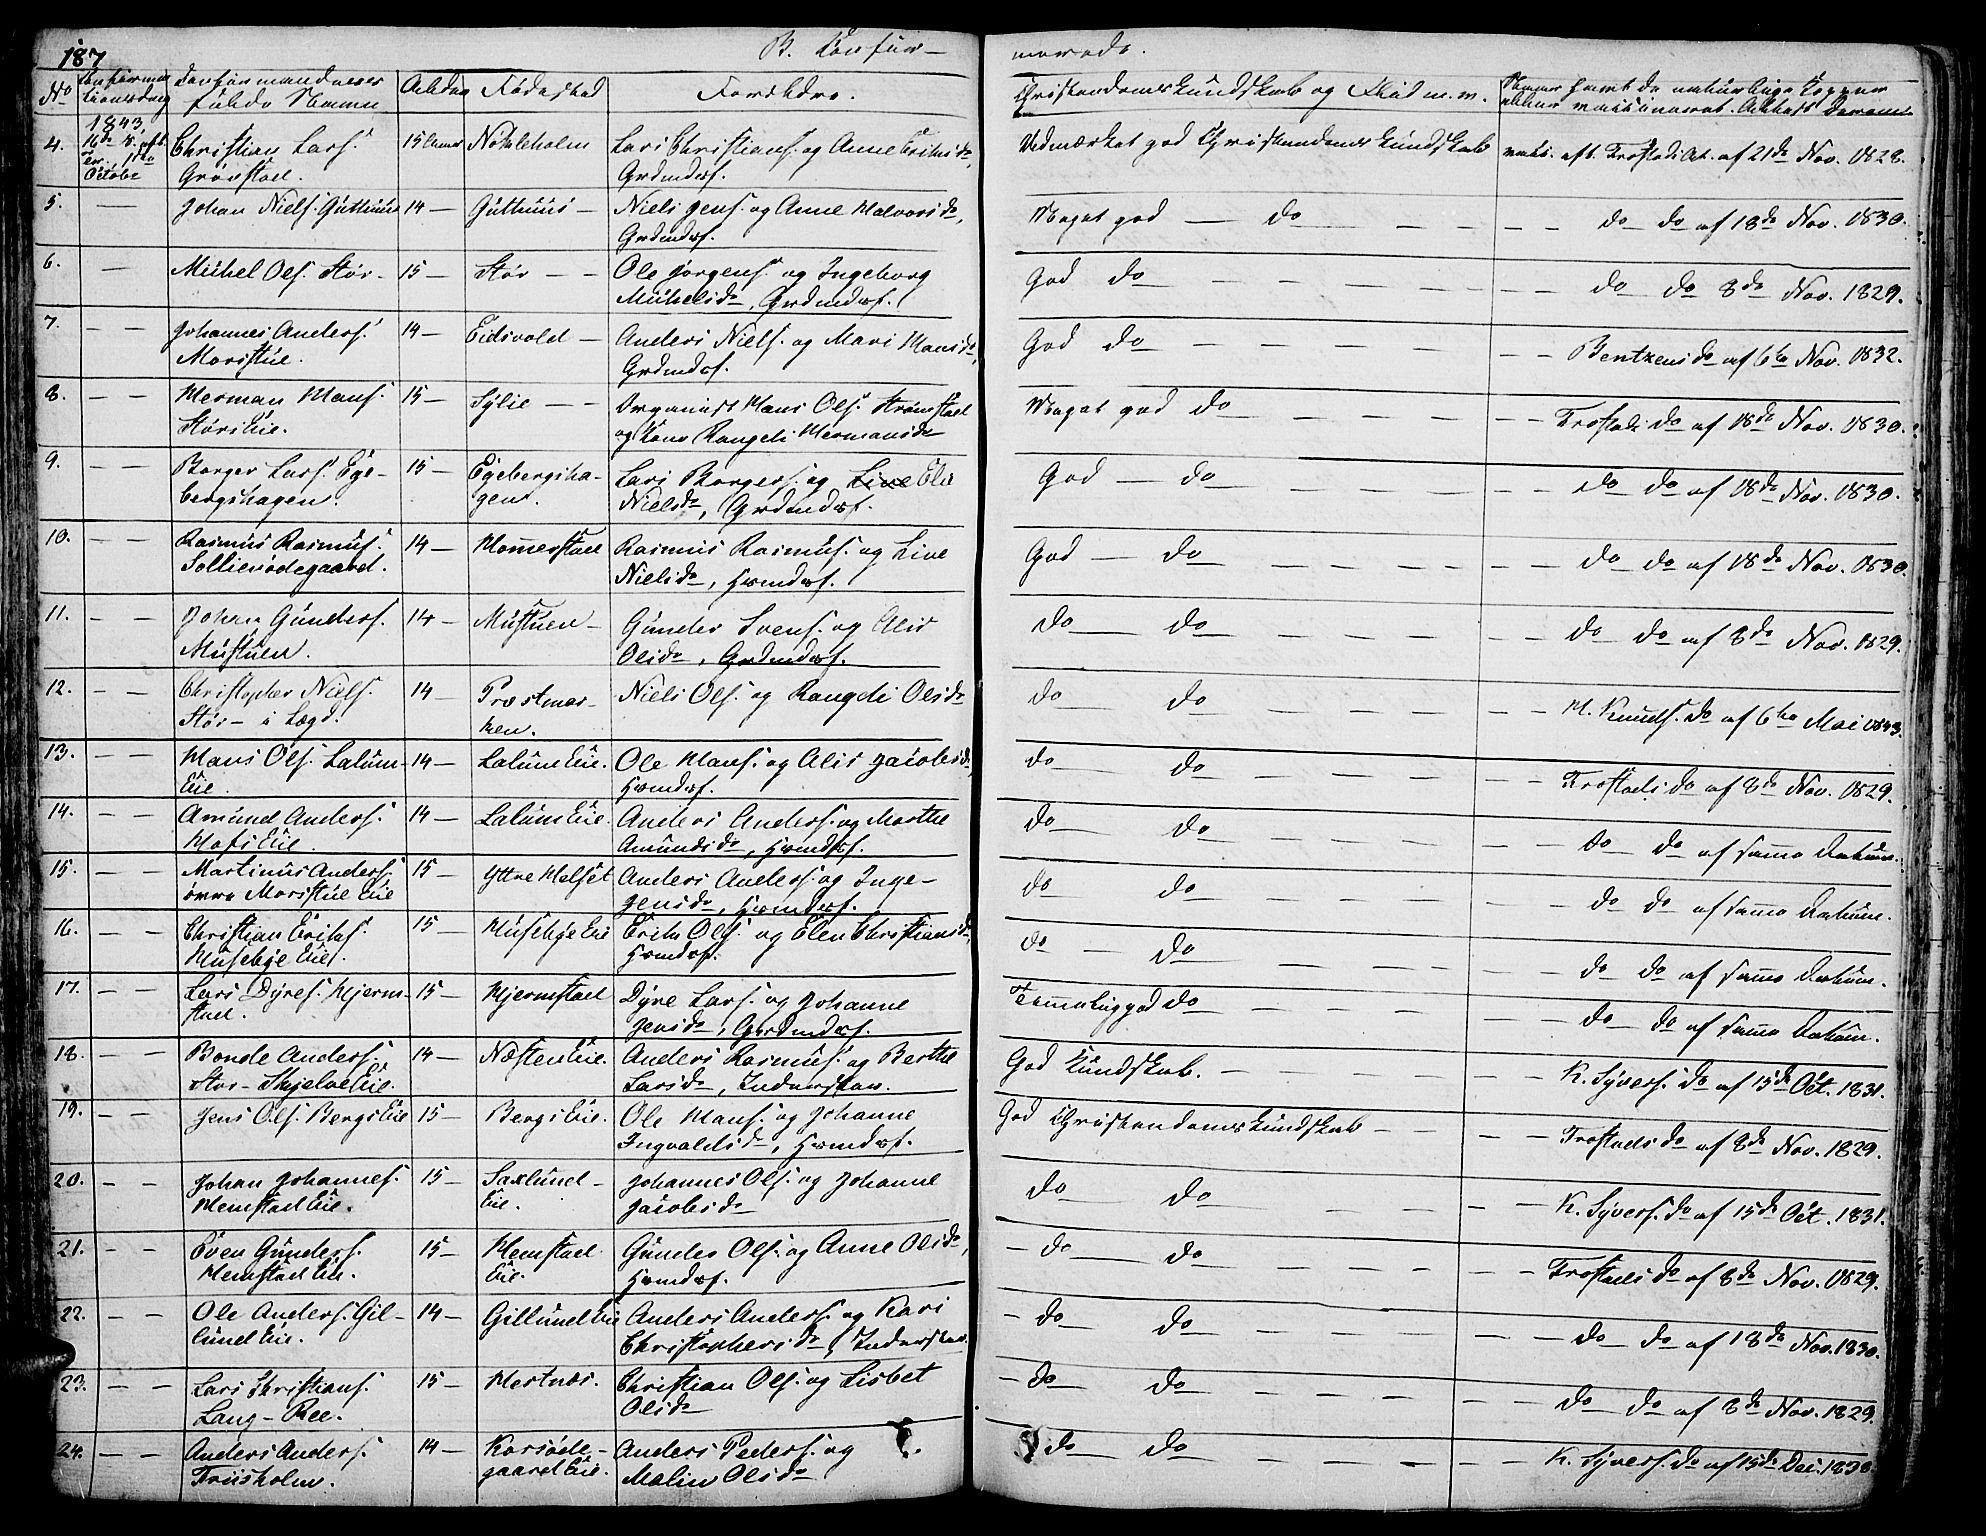 187
B. Confir-
merede.
No
Confirma-
tionsdag
Confirmandernes
fulde Navne
Alder
Fødested
Forældre.
Christendomskundskab og Flid m. m.
1843,
16de S. eft.
Tr., 1ste
Octobr
4. Christian Lars.
Gravstad.
15 Lars Christians. og Anne Eriksd.,
Grdmdsf.
Udmærket god Christendomskundskab
vacc. eft. Frostads Att. af 21de Nov. 1828.
5. — Johan Niels. Guthuus 14 — Guthuus — Niels Jens. og Anne Halvorsd.,
Grdmdsf.
Meget god — do — — — do do af 18de Nov. 1830.
6. — Mickel Ols. Stör 15 — Stör — — Ole Jörgens. og Ingeborg
Mickelsd., Grdmdsf.
God do — — — do do 8de Nov. 1829.
7. — — Johannes Anders.
Morstue.
14 — Eidsvold — Anders Niels. og Mari Hansd.,
Grdmdsf.
God do — — — Bentzens do af 6te Nov. 1832.
8. — — Herman Hans.
Störs Eie.
15 — Sylie — — Organist Hans Ols. Strömstad
og Kone Rangdi Hermansd.
Meget god do — — — Frostads do af 18de Nov. 1830.
9. — — Borger Lars. Ege-
bergshagen.
15 — Egebergsha-
gen. Lars Borgers. og Live Elis
Nielsd., Grdmdsf.
God — do — — — do do af 18de Nov. 1830.
10. — — Rasmus Rasmus.
Sollierödegaard.
14 — Homerstad Rasmus Rasmus. og Live
Nielsd., Hsmdsf.
God — do — — — do do af 18de Nov. 1830.
11. — — Johan Gunders.
Mustuen.
14 — Mustuen — Gunder Svens. og Alis
Olsd., Grdmdsf.
do do — — — do do af 8de Nov. 1829.
12. — — Christopher Niels.
Stör — i Lægd.
14 — Prostmar-
ken. Niels Ols. og Rangdi Olsd.
do do — — — H. Knuds. do af 6te Mai 1843.
13. — — Hans Ols. Lalum-
Eie.
14 — Lalum Eie. Ole Hans. og Alis Jacobsd.,
Hsmdsf.
do do — — — Frostads do af 8de Nov. 1829.
14. — — Amund Anders.
Hofs Eie.
14 — Lalum Eie. Anders Anders. og Marthe
Amundsd., Hsmdsf.
do do — — — do do af samme Datum.
15. — — Martinus Anders.
övre Morstue Eie
15 — Yttre Helset Anders Anders. og Inge-
Jensd., Hsmdsf.
do do — — — do do af samme Datum.
16. — — Christian Eriks.
Husebye Eie.
15 — Husebye Eie Erik Ols. og Elen Christiansd.,
Hsmdsf.
do do — — — do do af samme Datum.
17. — — Lars Dyres. Hjerm-
stad.
15 — Hjermstad Dyre Lars. og Johanne
Jensd., Grdmdsf.
Temmelig god do — — — do do af samme Datum.
18. — — Bonde Anders.
Stor-Skjelve Eie.
14 — Næsten Eie. Anders Rasmus. og Berthe
Larsd., Inderster.
God Kundskab. — — — K. Syvers. do af 15de Oct. 1831.
19. — — Jens Ols. Bergs Eie 15 — Bergs Eie. Ole Hans. og Johanne
Ingvaldsd., Hsmdsf.
God Christendomskundskab — — — Frostads do af 8de Nov. 1829.
20. — — Johan Johannes.
Hemstad Eie.
15 — Saxlund-
Eie. Johannes Ols. og Johanne
Jacobsd.
do do — — — K. Syvers. do af 15de Oct. 1831.
21. — — Even Gunders.
Hemstad Eie.
15 — Hemstad
Eie. Gunder Ols. og Anne Olsd.,
Hsmdsf.
do do — — — Frostads do af 8de Nov. 1829.
22. — — Ole Anders. Gil-
lund Eie.
14 — Gillund Eie Anders Anders. og Kari
Christophersd., Inderster.
do do — — — do do af 18de Nov. 1830.
23. — — Lars Christians.
Lang-Ree.
15 — Hestnæs. Christian Ols. og Lisbet
Olsd.
do do — — — do do af 8de Nov. 1829.
24. — — Anders Anders.
Friisholm.
14 — Korsöde-
gaard Eie. Anders Peders. og
Malin Olsd.
do do — — — K. Syvers. do af 15de Dec. 1830.